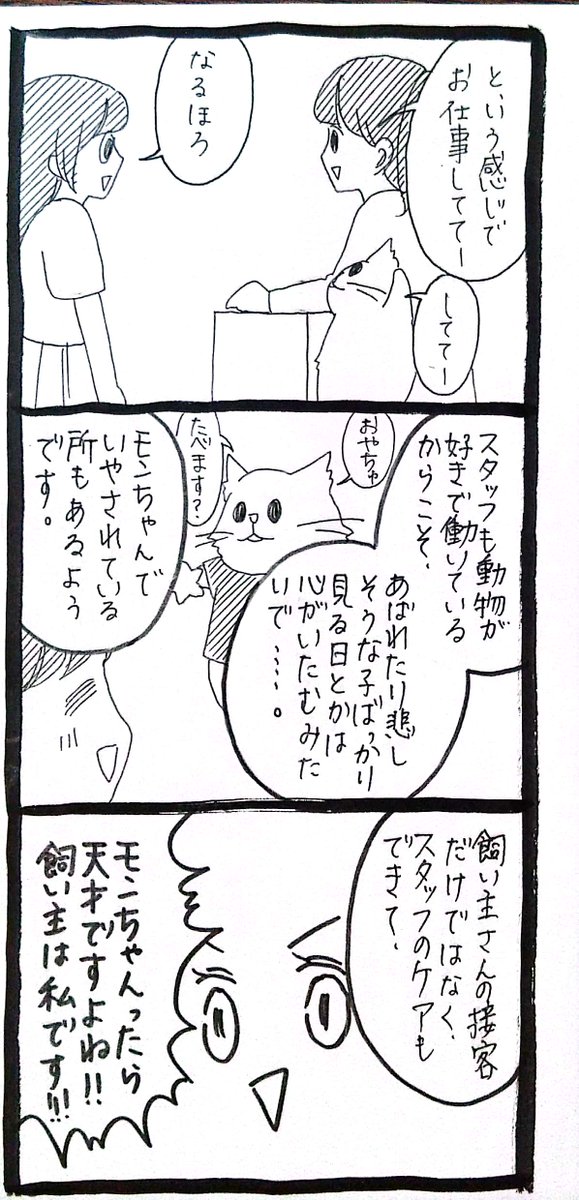 という感じで
お仕事しててー
しててー
なるほろ
スタッフも動物が
好きで働いている
からこそ、
あばれたり悲し
そうな子ばっかり
見る日とかは
心がいたむみた
いで……。
おやちゅ
たべます？
モンちゃんで
いやされている
所もあるよう
です。
飼い主さんの接客
だけではなく、
スタッフのケアも
できて、
モンちゃんったら
天才ですよね!!
飼い主は私です!!!